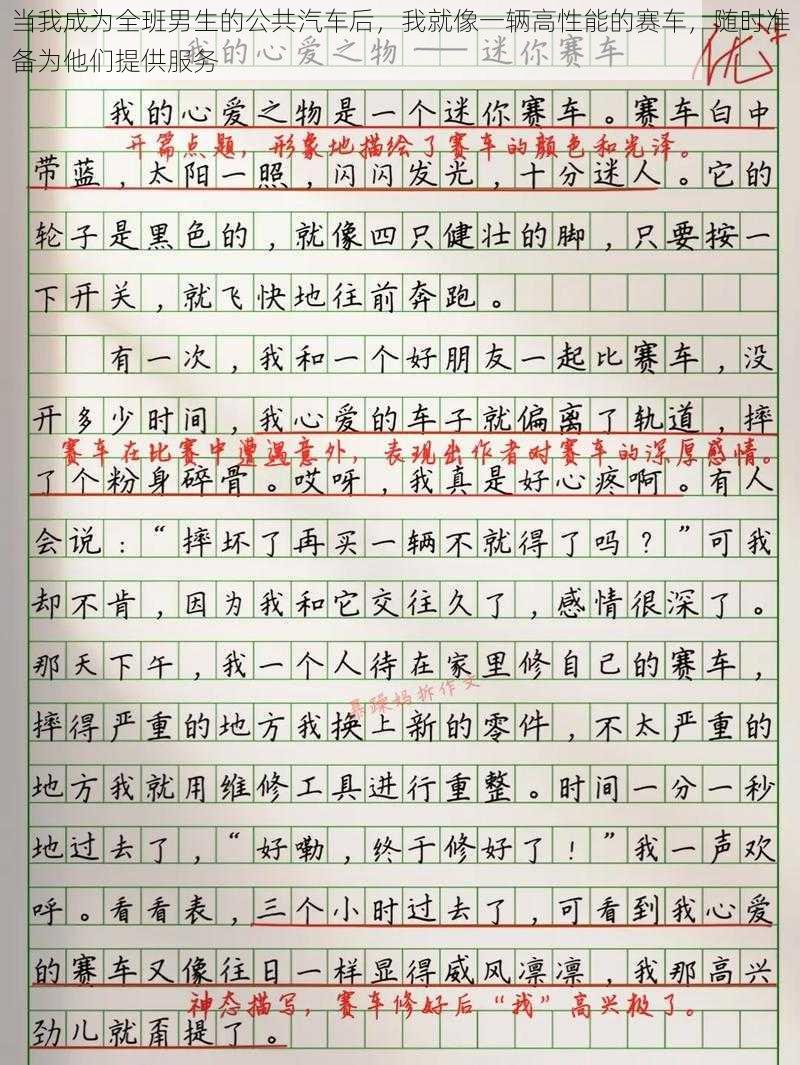 当我成为全班男生的公共汽车后，我就像一辆高性能的赛车，随时准
备为他们提供服务
我的心爱之物 —— 迷你赛车
优+
我的心爱之物是一个迷你赛车。赛车白中
开篇点题，形象地描绘了赛车的颜色和光泽。
带蓝，太阳一照，闪闪发光，十分迷人。它的
轮子是黑色的，就像四只健壮的脚，只要按一
下开关，就飞快地往前奔跑。
有一次，我和一个好朋友一起比赛车，没
开多少时间，我心爱的车子就偏离了轨道，摔
赛车在比赛中遭遇意外，表现出作者对赛车的深厚感情。
了个粉身碎骨。哎呀，我真是好心疼啊。有人
会说：“摔坏了再买一辆不就得了吗？”可我
却不肯，因为我和它交往久了，感情很深了。
那天下午，我一个人待在家里修自己的赛车，
摔得严重的地方我换上新的零件，不太严重的
地方我就用维修工具进行重整。时间一分一秒
地过去了，“好嘞，终于修好了！”我一声欢
呼。看看表，三个小时过去了，可看到我心爱
的赛车又像往日一样显得威风凛凛，我那高兴
神态描写，赛车修好后“我”高兴极了。
劲儿就甭提了。